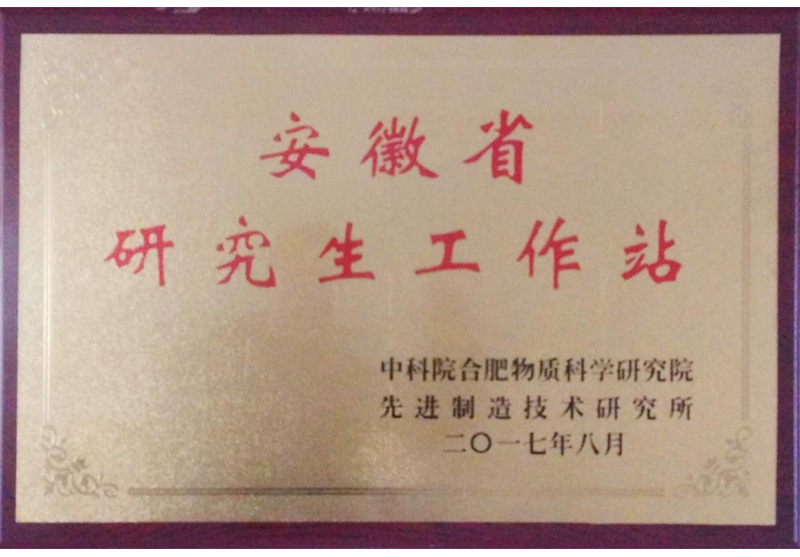 安徽省
研究生工作站
中科院合肥物质科学研究院
先进制造技术研究所
二〇一七年八月